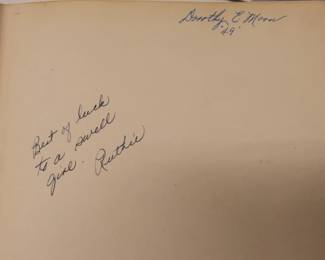 Dorothy E Moon
'49'
Best of luck
to a swell
girl. Ruthie